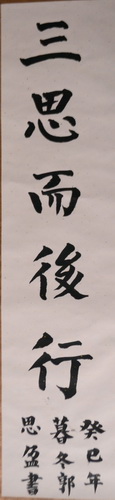 三思而後行
癸巳年
暮冬郭
思盈書